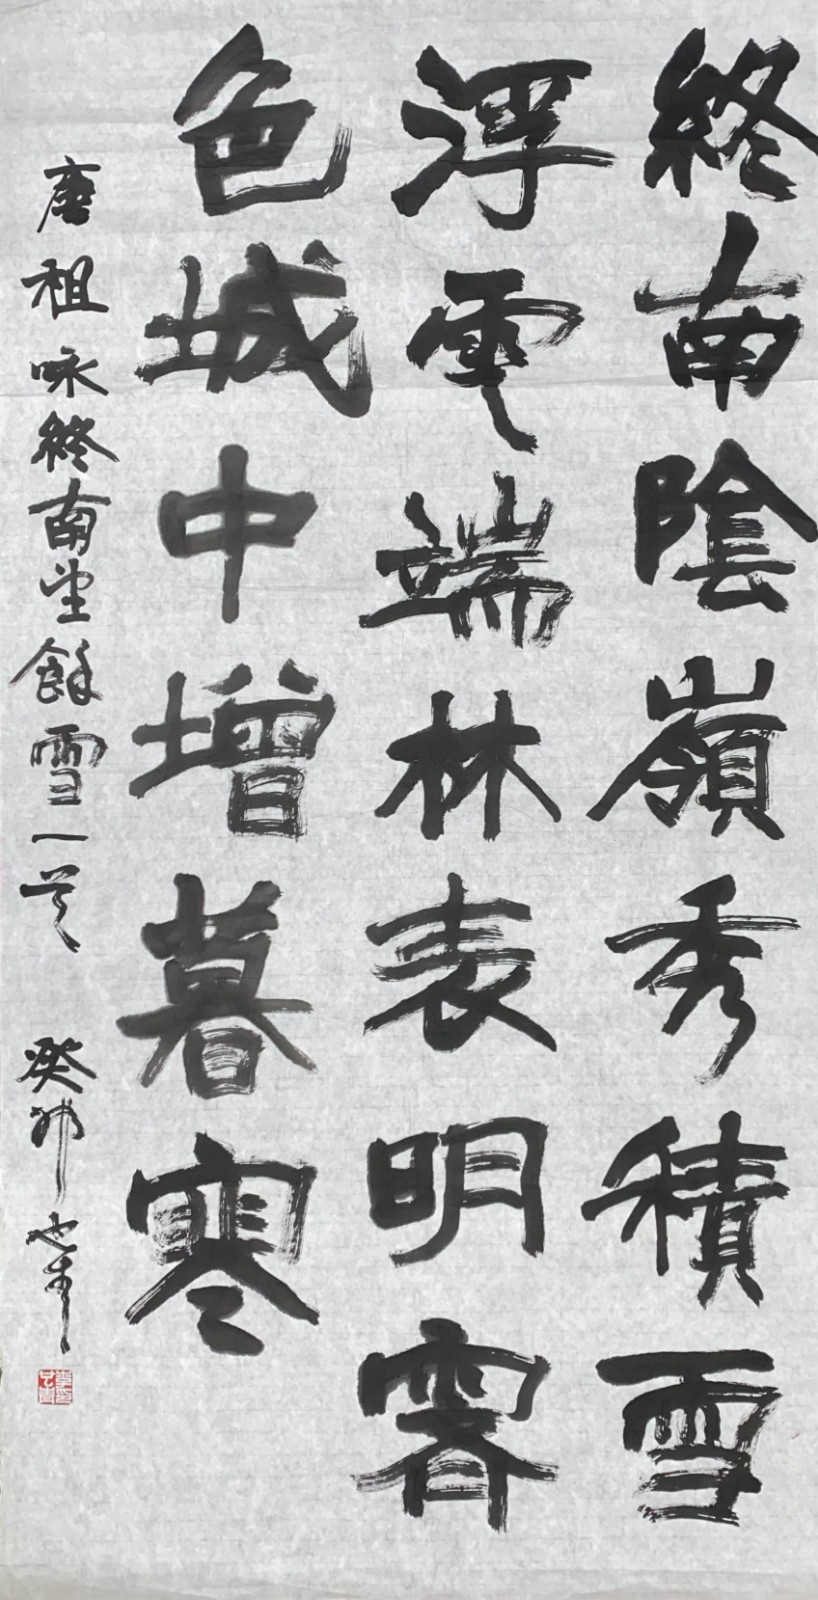 終南陰嶺秀積雪
浮雲端林表明霽
色城中增暮寒
唐祖咏終南望餘雪一首 癸卯